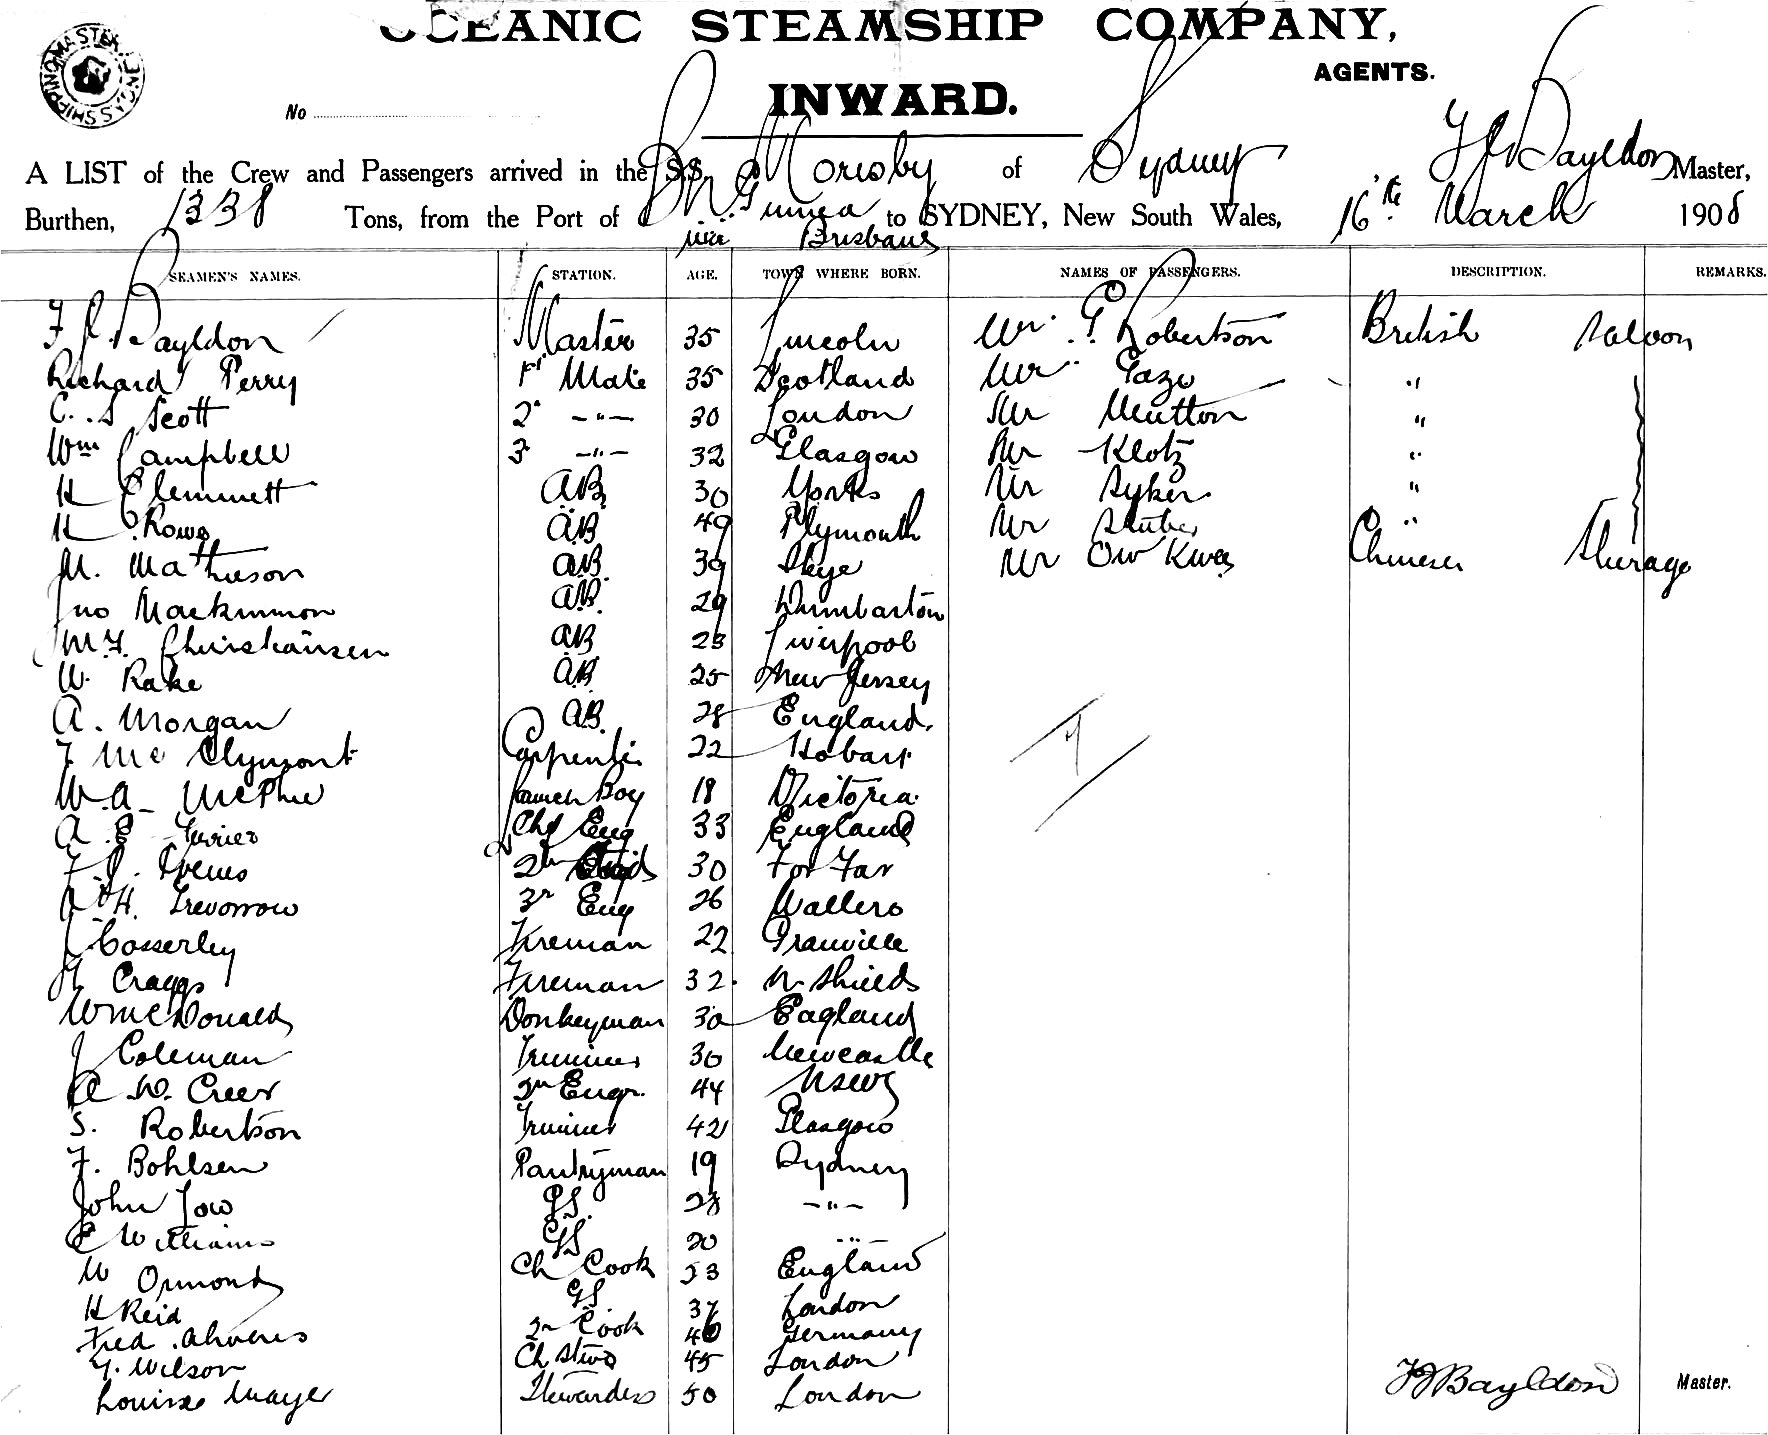 OCEANIC STEAMSHIP COMPANY,
AGENTS.
INWARD.
No
A LIST of the Crew and Passengers arrived in the S.S. Moresby of Sydney F J Bayldon Master,
Burthen, 1338 Tons, from the Port of N. Guinea to SYDNEY, New South Wales, 16th March 1908
via Brisbane
SEAMEN'S NAMES. STATION. AGE. TOWN WHERE BORN. NAMES OF PASSENGERS. DESCRIPTION. REMARKS.
F J Bayldon Master 35 Lincoln Mr. G Robertson British Saloon
Richard Perry 1st Mate 35 Scotland Mr "
C. S Scott 2 -"- 30 London Mr Mutton "
Wm Campbell 3 -"- 32 Glasgow Mr Klotz "
H Clemmett AB 30 Yorks Mr Syker "
H Rowe AB 49 Plymouth Mr "
M. Mathieson AB 39 Skye Mr Ow Kwa Chinese Steerage
Jno Mackinnon AB 29 Dumbarton
Christiansen AB 23 Liverpool
W. Rake AB 25 New Jersey
A. Morgan AB 28 England.
F McClymont Carpenter 22 Hobart
W.A. McPhee Boy 18 Victoria
A. E Chf Eng 33 England
F. J. 2nd 30 Forfar
H. Trevorrow 3r Eng 26 Wallero
J Cosserley Fireman 22 Granville
Craggs Fireman 32. N. Shields
W McDonald Donkeyman 30 England
J Coleman Trimmer 30 Newcastle
W. Creer 2n Engr. 44 NSW
S. Robertson Trimmer 42 Glasgow
F. Bohlsen Pantryman 19 Sydney
John Low GS. 28 -"-
E Williams GS 20 "
W Ormond Ch Cook 53 England
H Reid GS. 37 London
Fred Ahrens 2n Cook 46 Germany
Y. Wilson Ch Stwd 45 London
Louise Maye Stewardess 50 London
F J Bayldon Master.